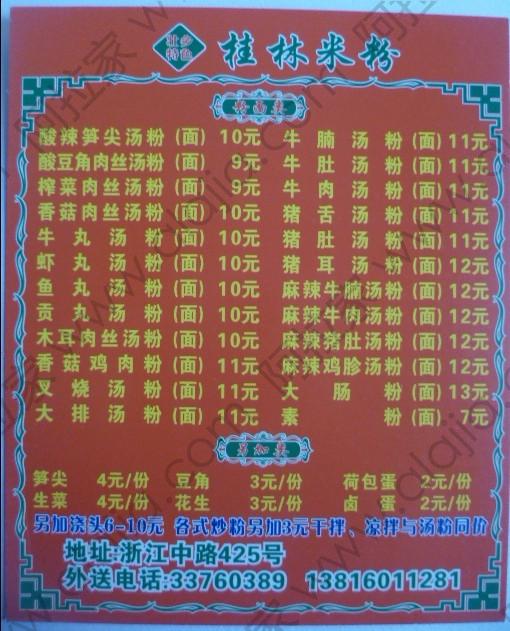 壮乡
特色
桂林米粉
粉面类
酸辣笋尖汤粉(面) 10元 牛腩汤粉(面)11元
酸豆角肉丝汤粉(面) 9元 牛肚汤粉(面)11元
榨菜肉丝汤粉(面) 9元 牛肉汤粉(面)11元
香菇肉丝汤粉(面) 10元 猪舌汤粉(面)11元
牛丸汤粉(面) 10元 猪肚汤粉(面)11元
虾丸汤粉(面) 10元 猪耳汤粉(面)12元
鱼丸汤粉(面) 10元 麻辣牛腩汤粉(面)12元
贡丸汤粉(面) 10元 麻辣牛肉汤粉(面)12元
木耳肉丝汤粉(面) 10元 麻辣猪肚汤粉(面)12元
香菇鸡肉粉(面) 11元 麻辣鸡胗汤粉(面)12元
叉烧汤粉(面) 11元 大肠粉(面)13元
大排汤粉(面) 11元 素粉(面) 7元
另加类
笋尖 4元/份 豆角 3元/份 荷包蛋 2元/份
生菜 4元/份 花生 3元/份 卤蛋 2元/份
另加浇头6-10元 各式炒粉另加3元干拌、凉拌与汤粉同价
地址:浙江中路425号
外送电话:33760389 13816011281
阿拉家 www.alajia.com